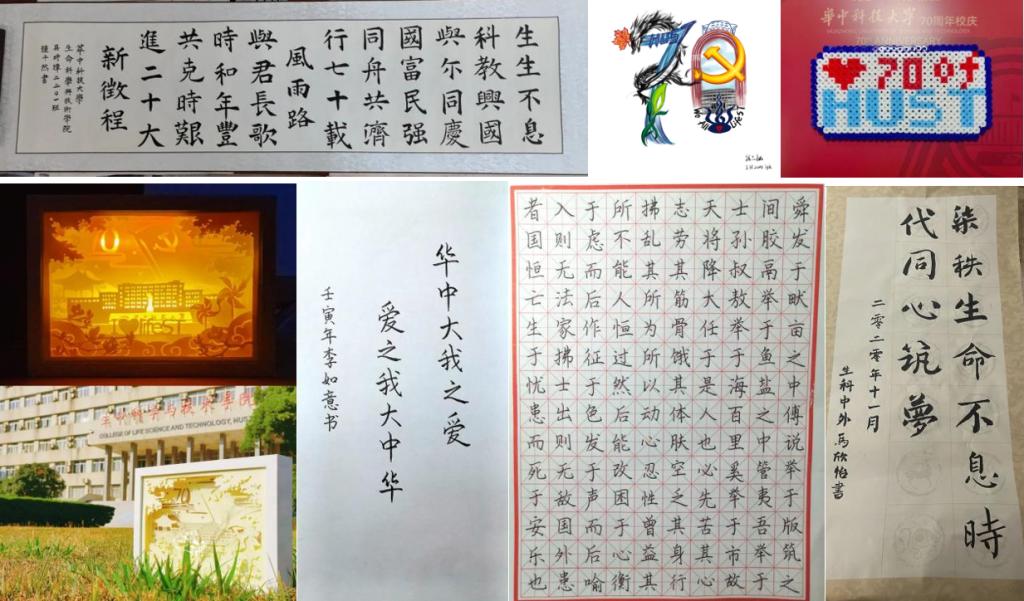 生生不息
科教興國
與尔同慶
國富民强
同舟共濟
行七十載
風雨路
與君長歌
時和年豐
共克時艱
進二十大
新徵程
華中科技大學
生命科學與技術學院
HUST
70
We All
Life ST
華中科技大学 70周年校庆
70
HUST
I ❤ lifeST
COLLEGE OF LIFE SCIENCE AND TECHNOLOGY, HU
70
华中大我之爱
爱之我大中华
壬寅年李如意书
舜发于畎亩之中傅说举于版筑之
间胶鬲举于鱼盐之中管夷吾举于
士孙叔敖举于海百里奚举于市故
天将降大任于是人也必先苦其心
志劳其筋骨饿其体肤空乏其身行
拂乱其所为所以动心忍性曾益其
所不能人恒过然后能改困于心衡
于虑而后作征于色发于声而后喻
入则无法家拂士出则无敌国外患
者国恒亡生于忧患而死于安乐也
柒秩生命不息時
代同心筑夢
二零二零年十一月
生科中外馬欣怡書